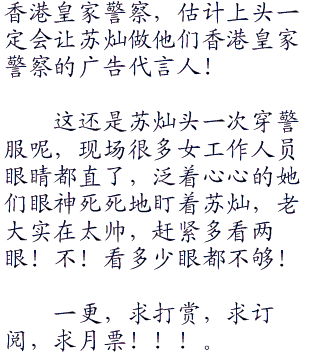 香港皇家警察，估计上头一
定会让苏灿做他们香港皇家
警察的广告代言人！
这还是苏灿头一次穿警
服呢，现场很多女工作人员
眼睛都直了，泛着心心的她
们眼神死死地盯着苏灿，老
大实在太帅，赶紧多看两
眼！不！看多少眼都不够！
一更，求打赏，求订
阅，求月票！！！。